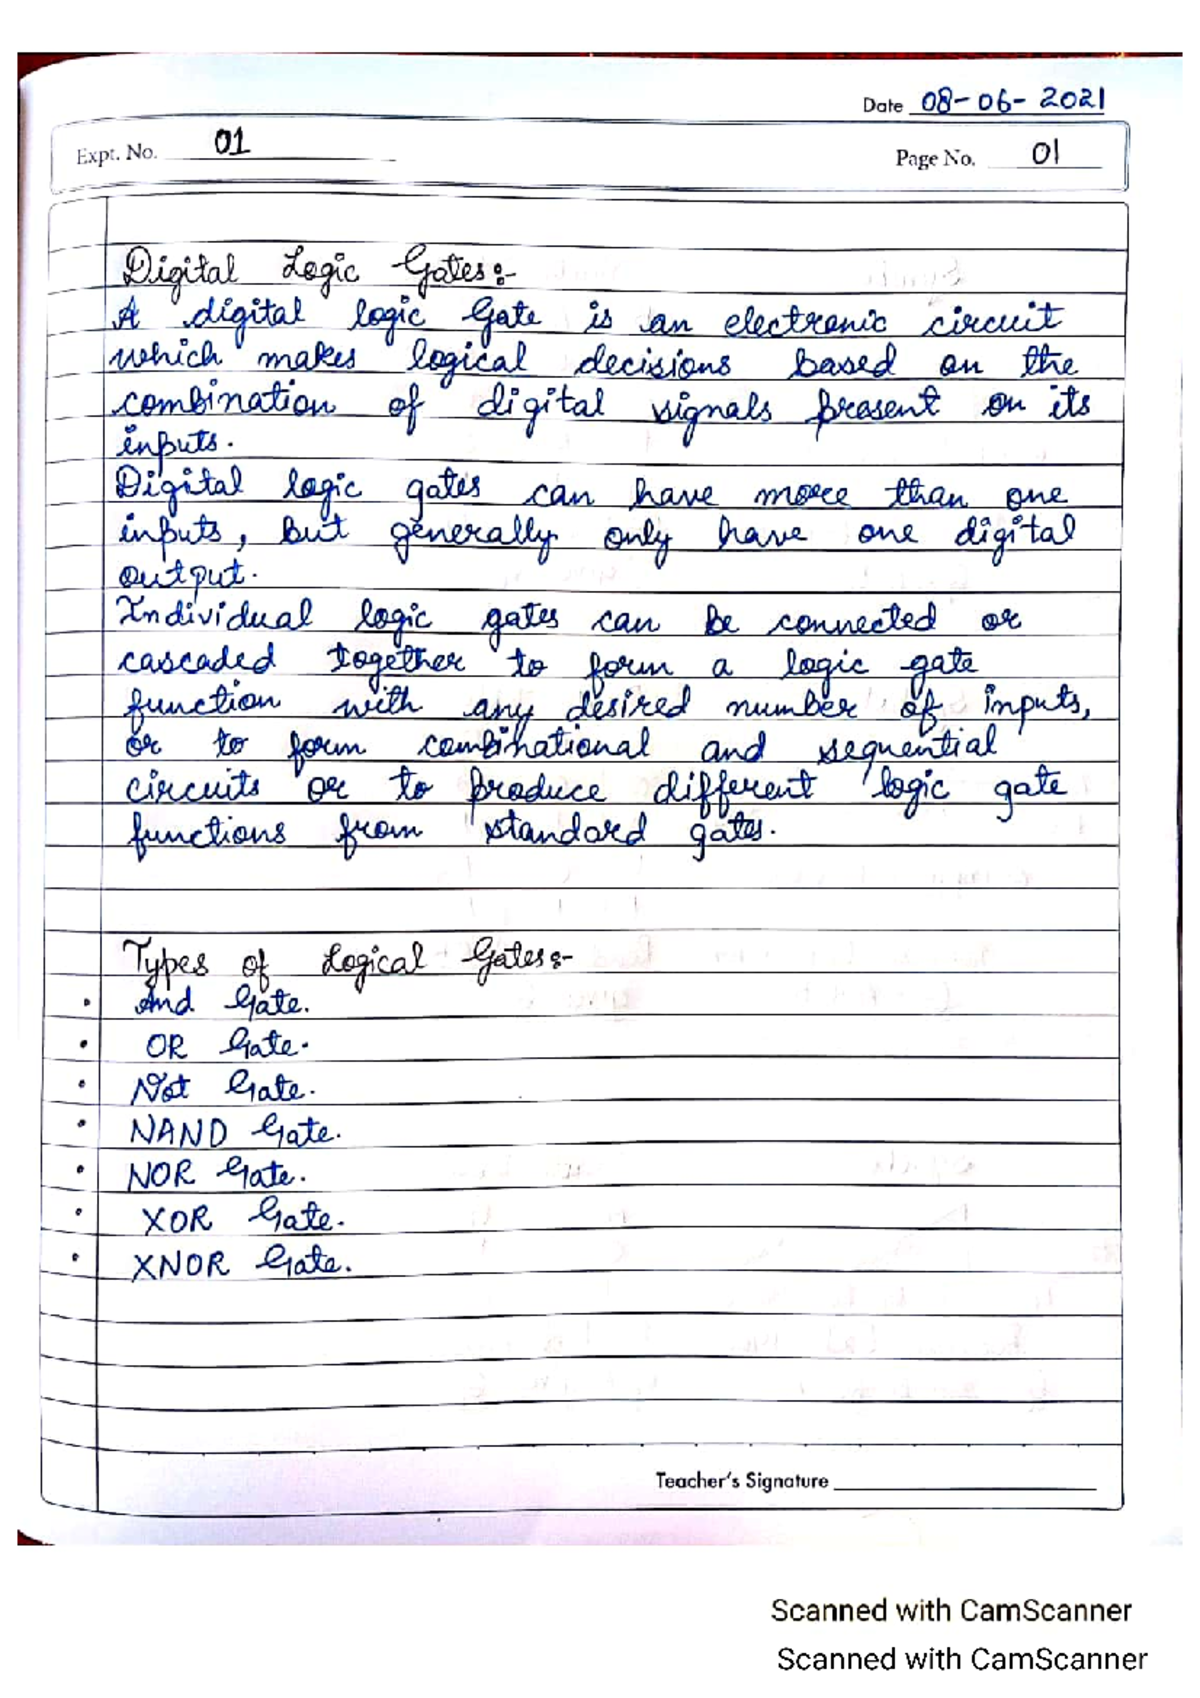 Date 08-06-2021
Expt. No. 01
Page No. 01
Digital Logic Gates:-
A digital logic Gate is an electronic circuit
which makes logical decisions based on the
combination of digital signals present on its
inputs.
Digital logic gates can have more than one
inputs, but generally only have one digital
output.
Individual logic gates can be connected or
cascaded together to form a logic gate
function with any desired number of inputs,
or to form combinational and sequential
circuits or to produce different logic gate
functions from standard gates.
Types of Logical Gates:-
• And Gate.
• OR Gate.
• Not Gate.
• NAND Gate.
• NOR Gate.
• XOR Gate.
• XNOR Gate.
Teacher's Signature
Scanned with CamScanner
Scanned with CamScanner